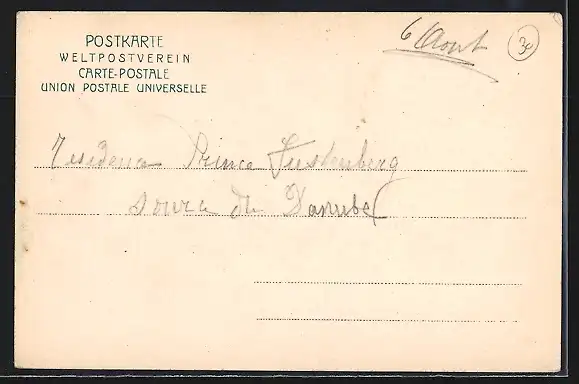 POSTKARTE
WELTPOSTVEREIN
CARTE-POSTALE
UNION POSTALE UNIVERSELLE
6 Aout
3c
Residence Prince Fustenberg
source du Danube